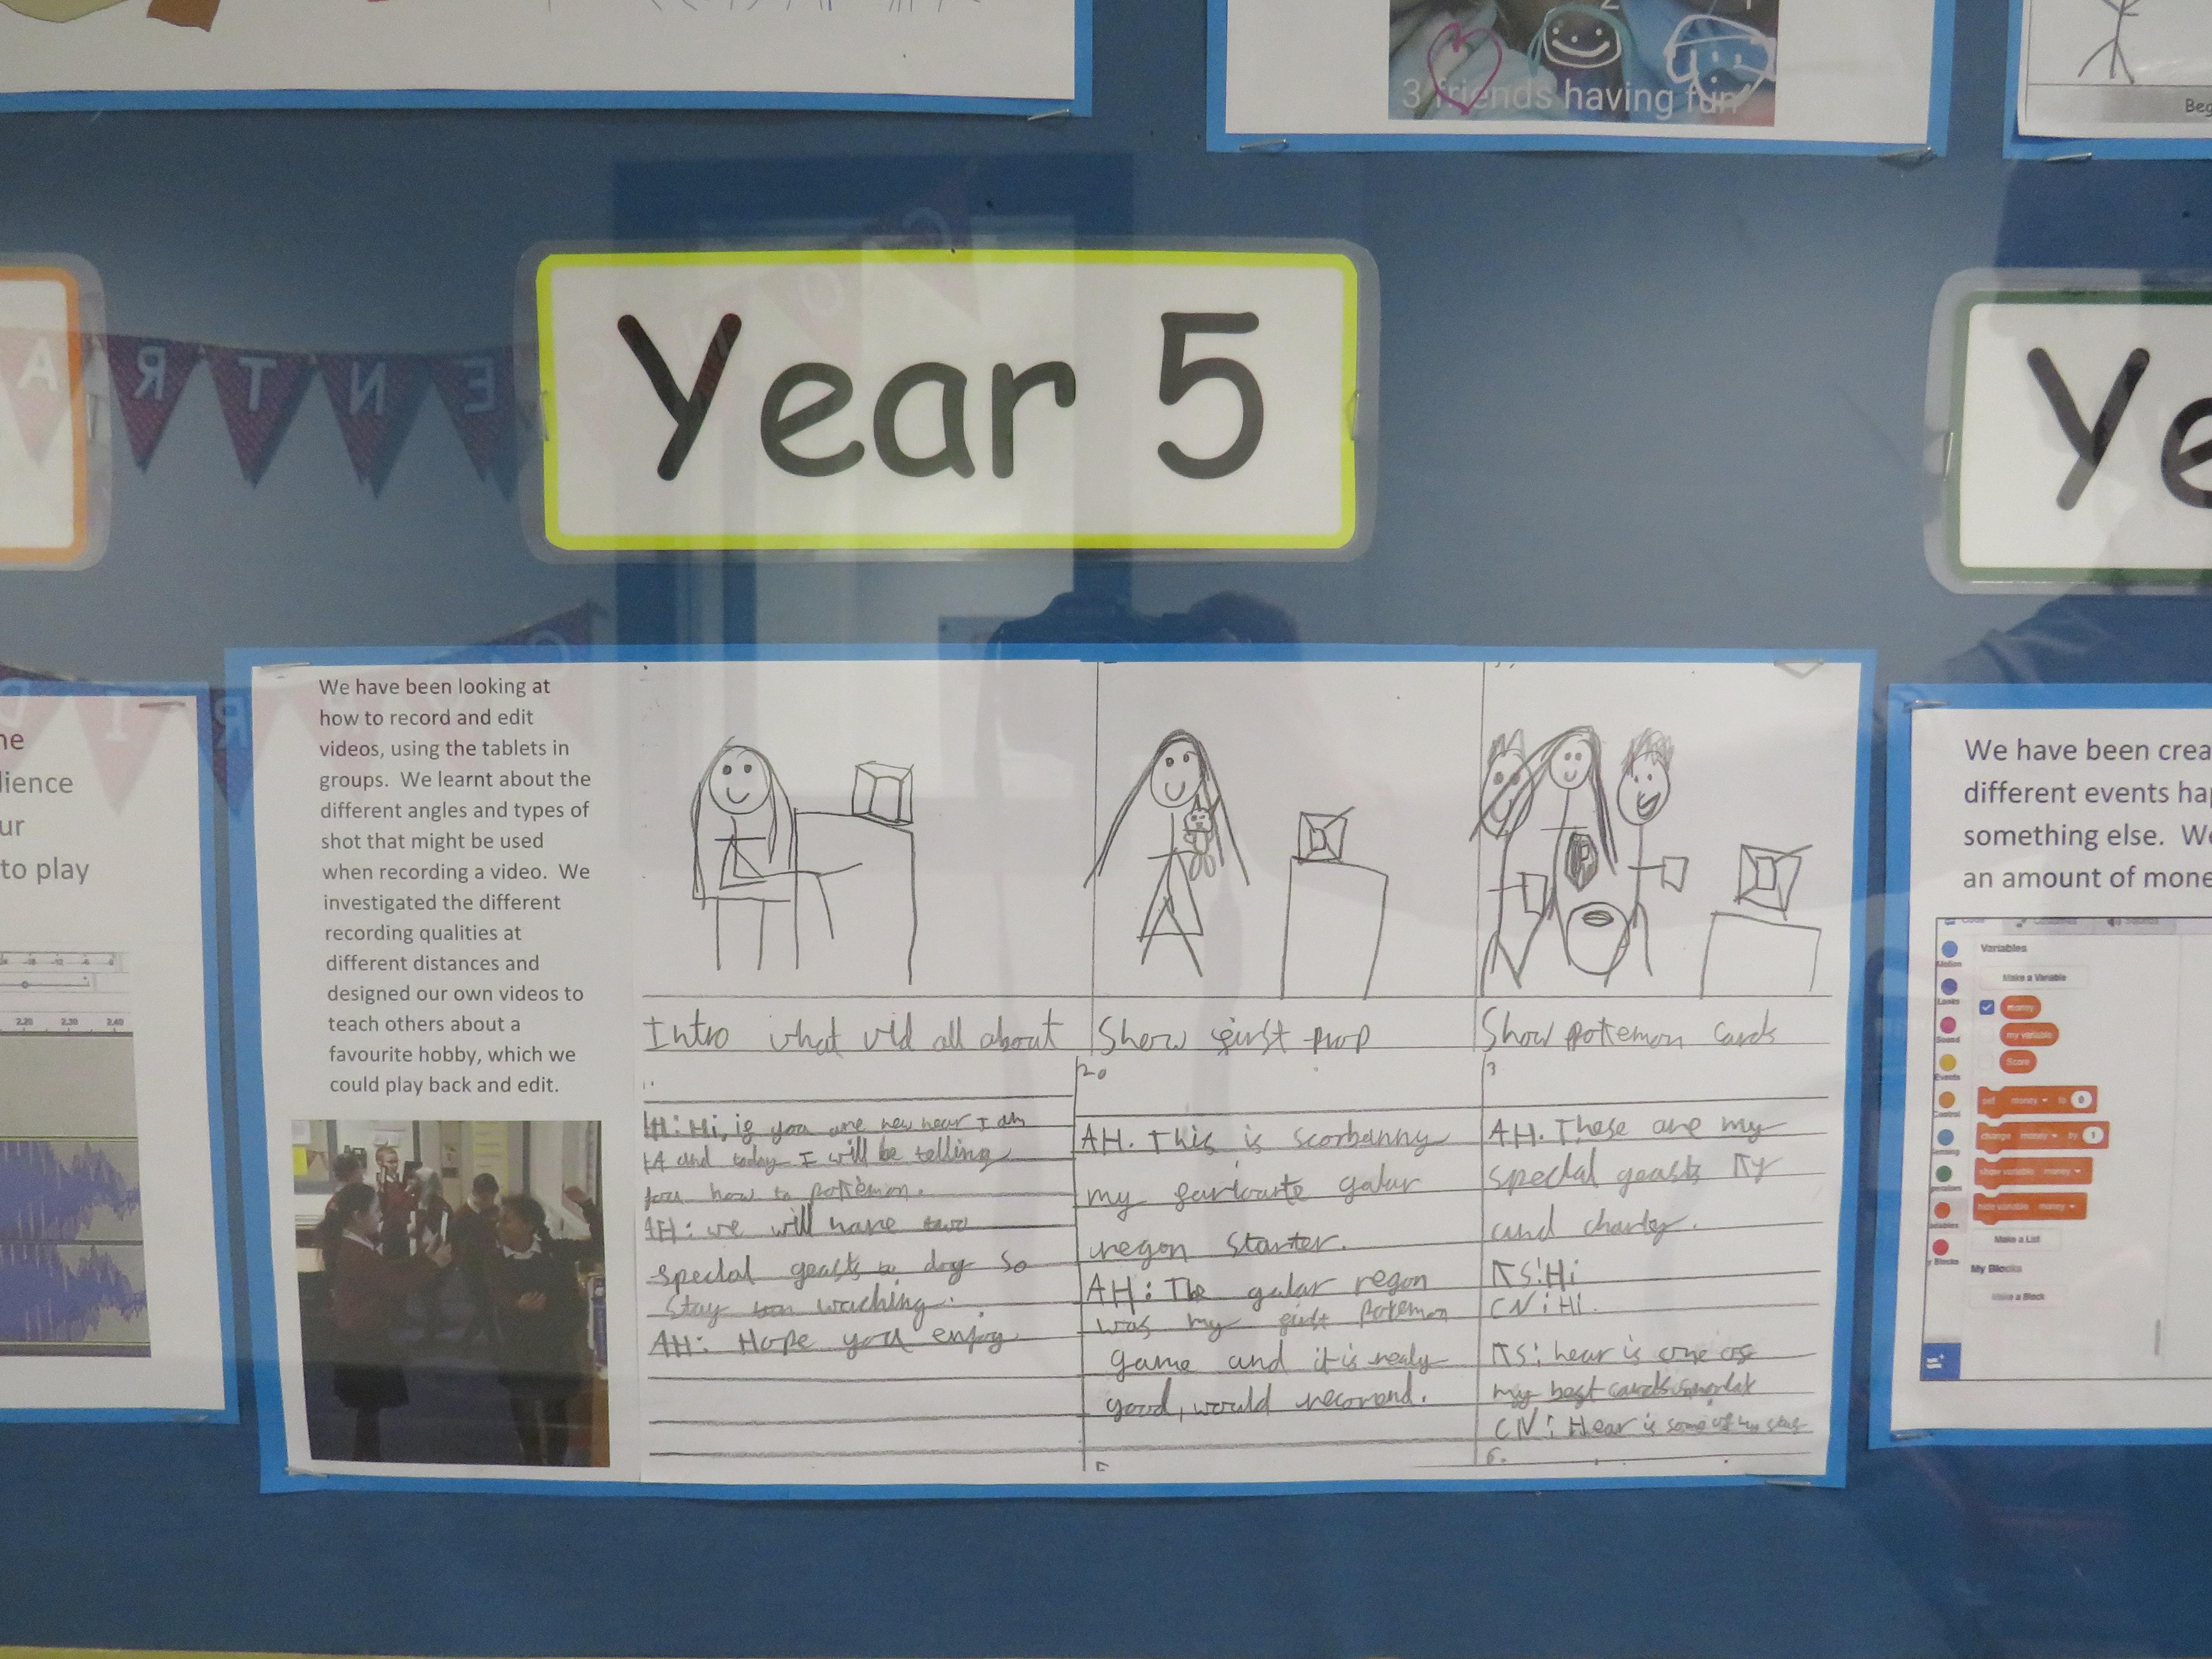 3 friends having fun
Beg
Year 5
Ye
A R T N E C
We have been looking at
how to record and edit
videos, using the tablets in
groups. We learnt about the
different angles and types of
shot that might be used
when recording a video. We
investigated the different
recording qualities at
different distances and
designed our own videos to
teach others about a
favourite hobby, which we
could play back and edit.
Intro what vid all about
Show first prop
Show pokemon cards
1.
H: Hi, if you are new hear I am
and today I will be telling
you how to pokemon.
AH: we will have two
special geasts to day so
Stay waching.
AH: Hope you enjoy
2.
AH. This is scorbunny
my fariourte galar
regon starter.
AH: The galar regon
was my first pokemon
game and it is realy
good, would recomend.
5
3
AH. These are my
special geasts
and charley.
TS: Hi
CN: Hi.
TS: hear is one of
my best cards
CN: Hear is some of
6.
ne
dience
ur
to play
2.20 2.30 2.40
We have been crea
different events hap
something else. We
an amount of mone
Variables
Make a Variable
money
my variable
Score
set money to 0
change money by 1
show variable money
hide variable money
Make a List
My Blocks
Make a Block
Motion
Looks
Sound
Events
Control